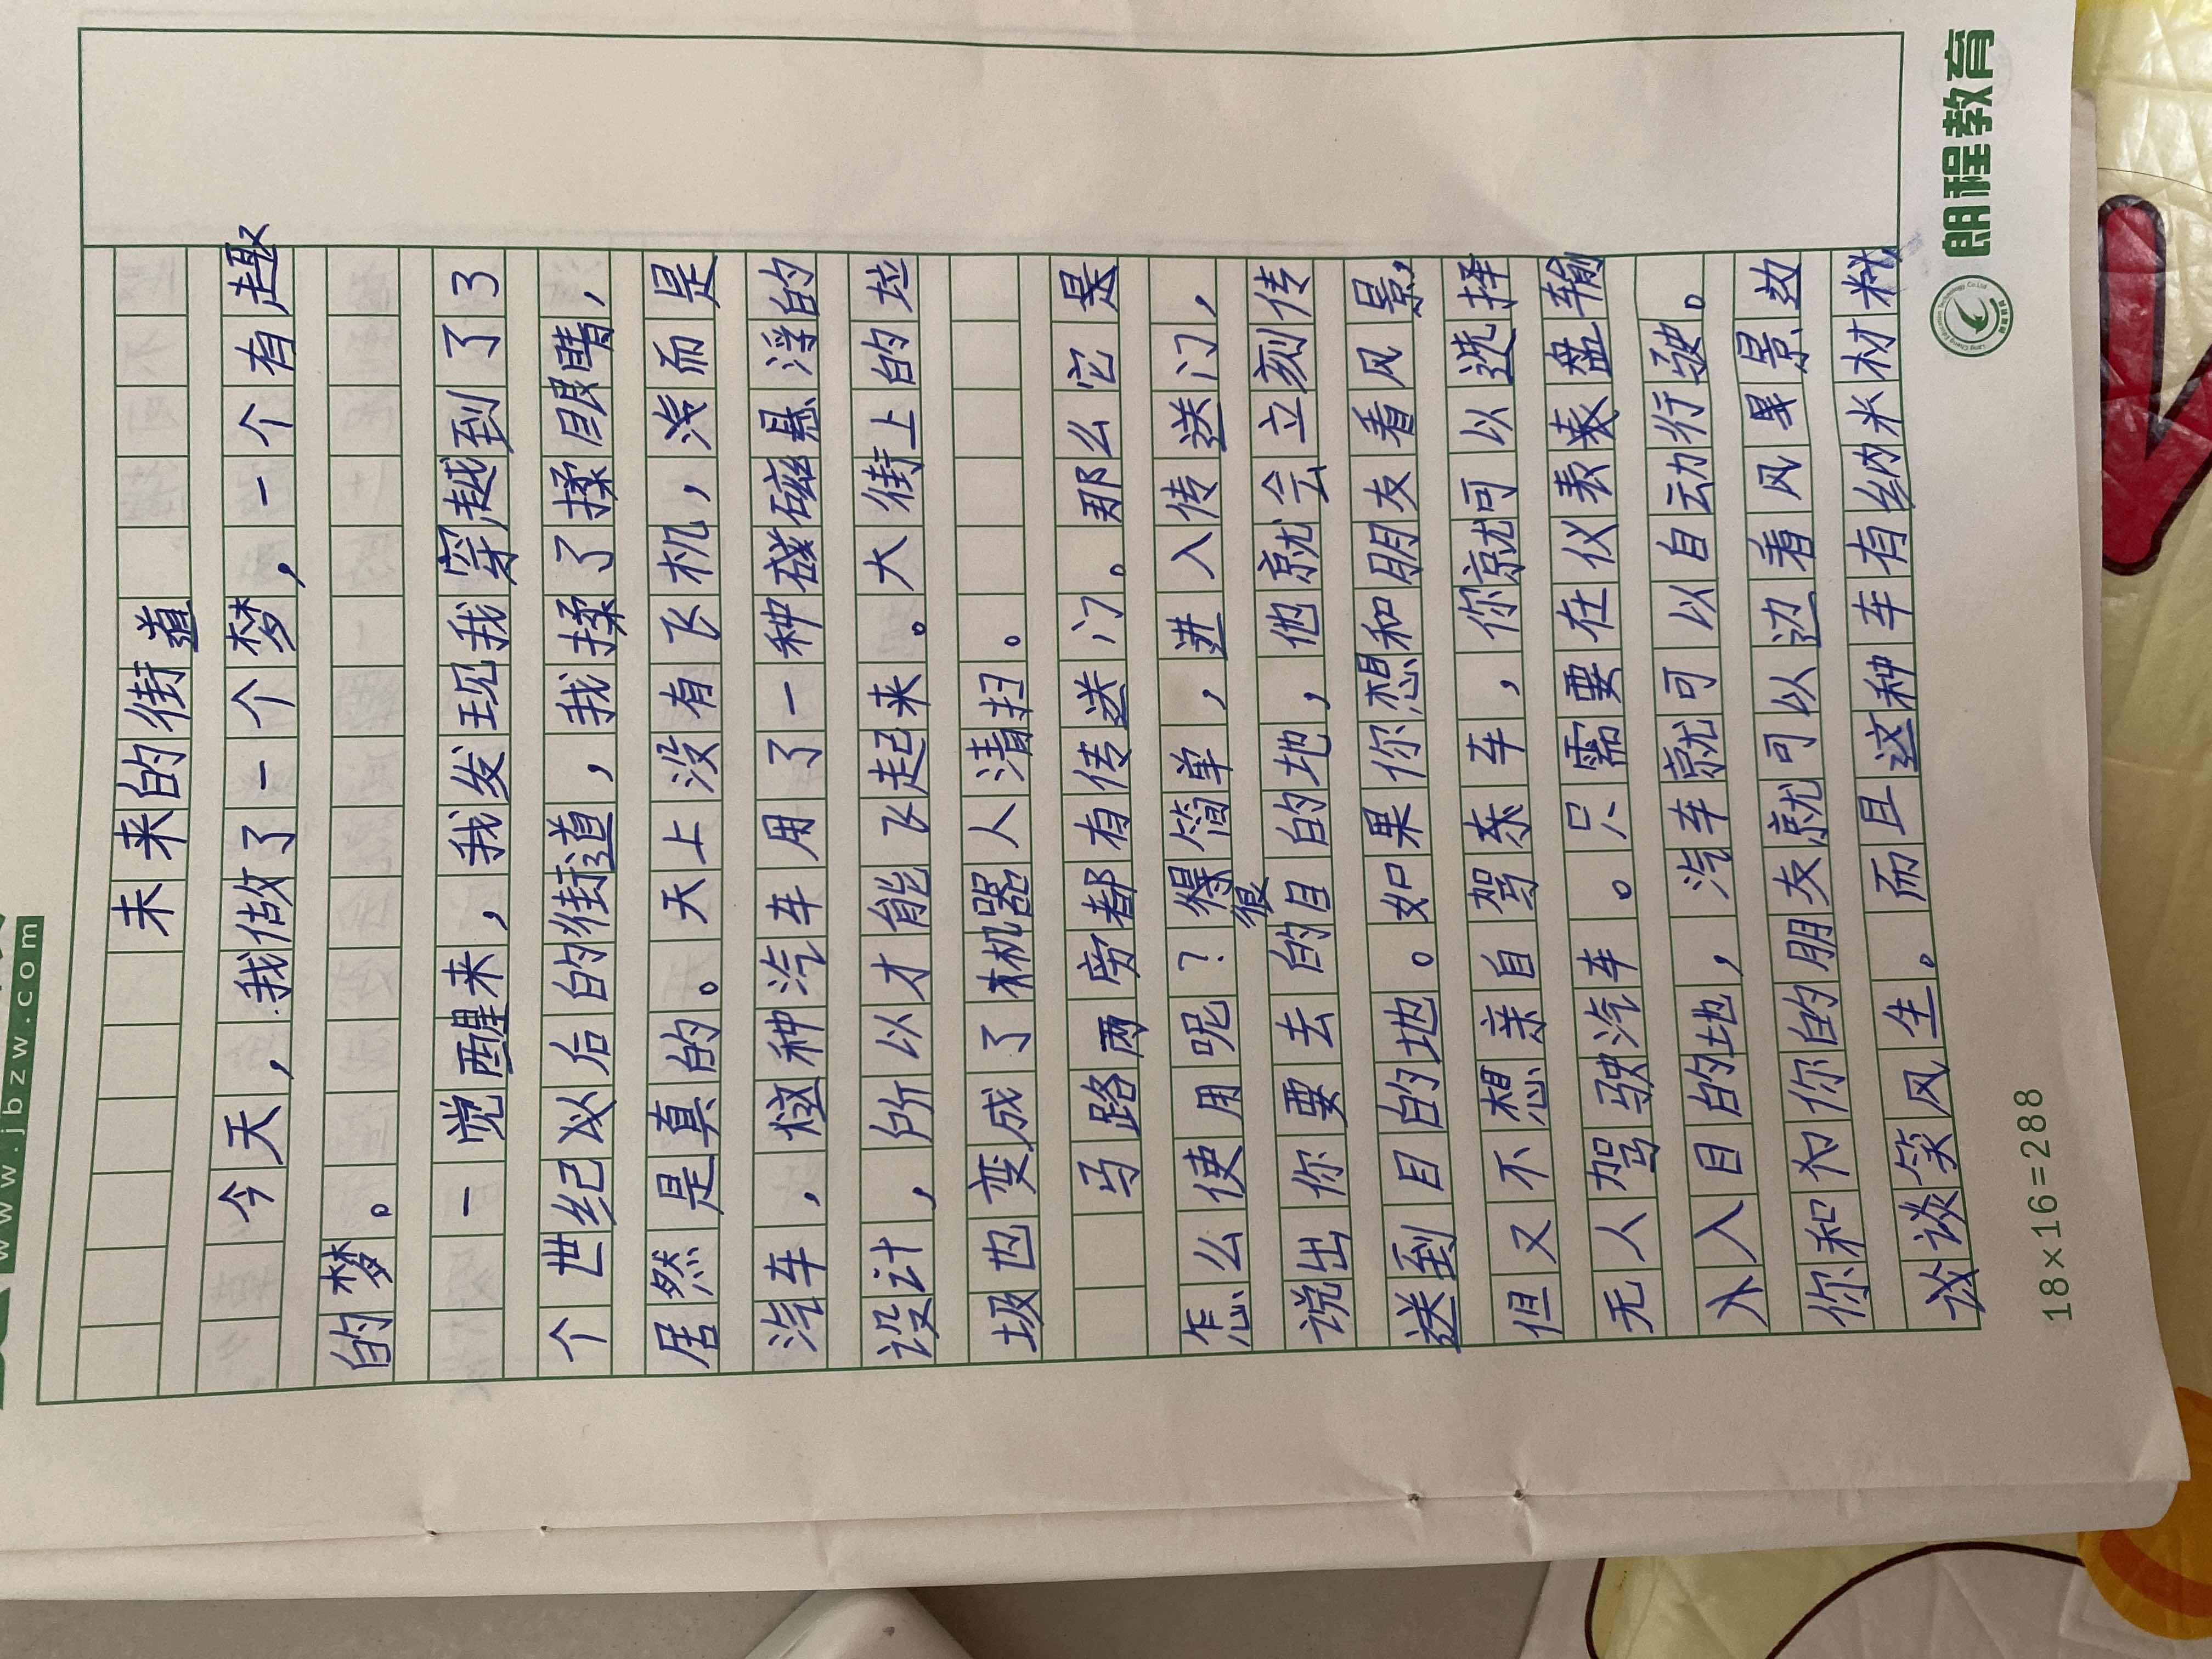 www.jbzw.com
未来的街道
今天，我做了一个梦，一个有趣
的梦。
一觉醒来，我发现我穿越到了3
个世纪以后的街道，我揉了揉眼睛，
居然是真的。天上没有飞机，汽而是
汽车，这种汽车用了一种磁悬浮的
设计，所以才能飞起来。大街上的垃
圾也变成了机器人清扫。
马路两旁都有传送门。那么它是
怎么使用呢？很简单，进入传送门，
说出你要去的目的地，他就会立刻传
送到目的地。如果你想和朋友看风景，
但又不想亲自驾车，你就可以选择
无人驾驶汽车。只需要在仪表盘输
入目的地，汽车就可以自动行驶。
你和你的朋友就可以边看风景边
谈笑风生。而且这种车有纳米材料，
18×16=288
朗程教育